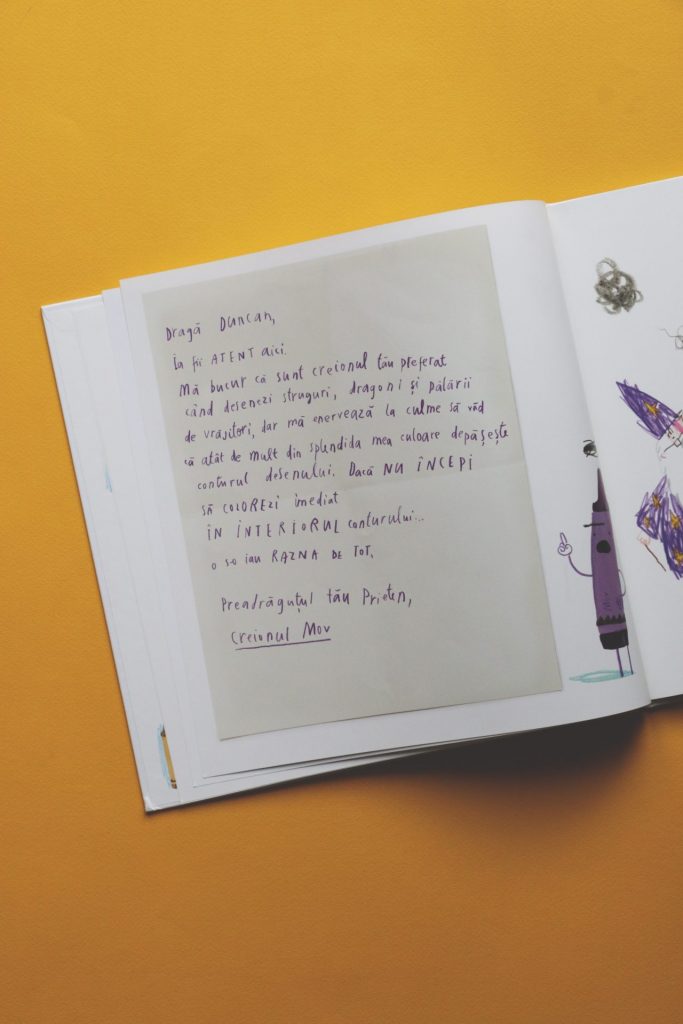 Dragă Duncan,
Ia fii ATENT aici.
Mă bucur că sunt creionul tău preferat
când desenezi struguri, dragoni și pălării
de vrăjitori, dar mă enervează la culme să văd
că atât de mult din splendida mea culoare depășește
conturul desenului. Dacă NU ÎNCEPI
să COLOREZI imediat
ÎN INTERIORUL conturului...
o s-o iau RAZNA DE TOT.
Preadrăguțul tău Prieten,
Creionul Mov